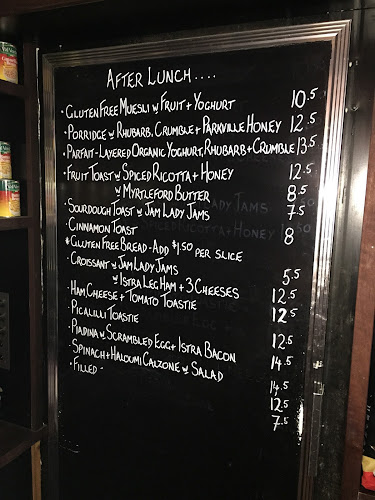 AFTER LUNCH....
· GLUTEN FREE MUESLI w FRUIT + YOGHURT 10.5
· PORRIDGE w RHUBARB, CRUMBLE + PARKVILLE HONEY 12.5
· PARFAIT - LAYERED ORGANIC YOGHURT, RHUBARB + CRUMBLE 13.5
· FRUIT TOAST w SPICED RICOTTA + HONEY 12.5
w MYRTLEFORD BUTTER 8.5
· SOURDOUGH TOAST w JAM LADY JAMS 7.5
· CINNAMON TOAST 8
* GLUTEN FREE BREAD - ADD $1.50 PER SLICE
· CROISSANT w JAM LADY JAMS 5.5
w ISTRA LEG HAM + 3 CHEESES 12.5
· HAM, CHEESE + TOMATO TOASTIE 12.5
· PICALILLI TOASTIE 12.5
· PIADINA w SCRAMBLED EGG + ISTRA BACON 14.5
· SPINACH + HALOUMI CALZONE w SALAD 14.5
· FILLED - 12.5
7.5